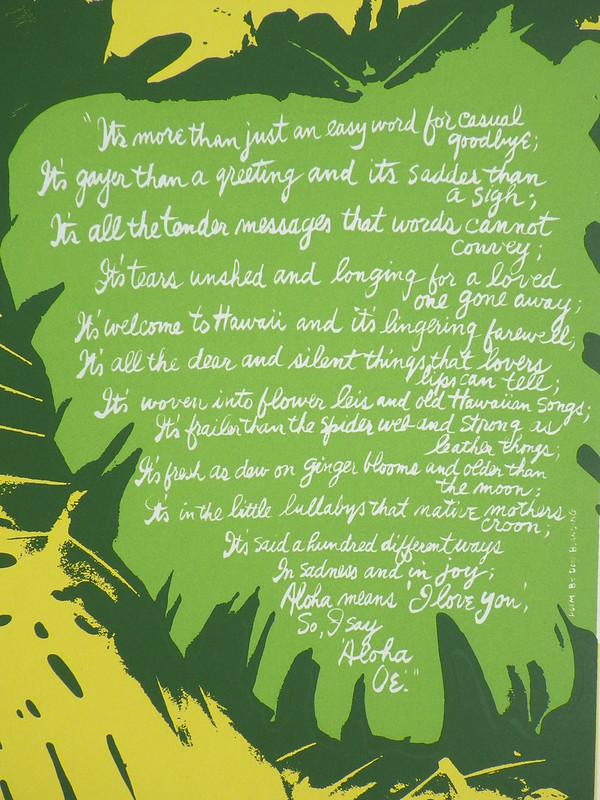 "It's more than just an easy word for casual
goodbye;
It's gayer than a greeting and its sadder than
a sigh;
It's all the tender messages that words cannot
convey;
It's tears unshed and longing for a loved
one gone away;
It's welcome to Hawaii and it's lingering farewell,
It's all the dear and silent things that lovers
lips can tell;
It's woven into flower leis and old Hawaiian songs;
It's frailer than the spider web and strong as
leather thongs;
It's fresh as dew on ginger blooms and older than
the moon;
It's in the little lullabys that native mothers
croon;
It's said a hundred different ways
In sadness and in joy;
Aloha means 'I love you',
So, I say
'Aloha
Oe'."
POEM BY DON BLANDING